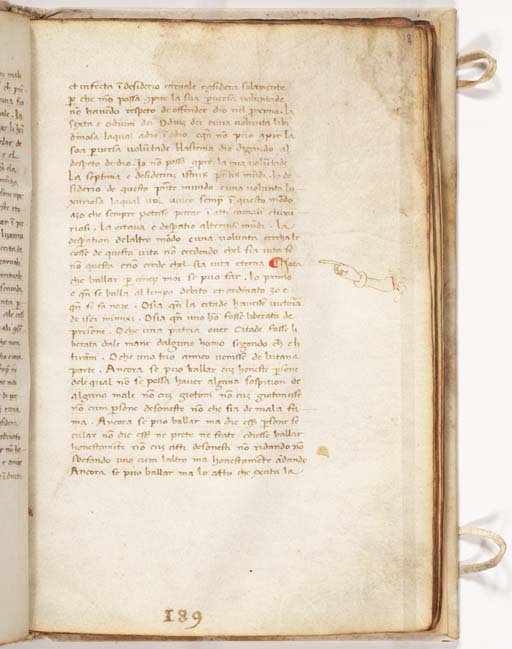 et infecta ī desiderio carnale cōsidera solamente
p̄ che nō possa cōpire la sua puersa voluntade
nō havendo respeto de offender dio nel proximo. la
sexta e odium dei Odiuz dei e una volunta libi
dinosa laqual a dio ī odio. cqn̄ nō puo cōpir la
soa puersa volūtade blastema dio digando al
despeto de dio. Io nō posso cōpir la mia volūtade
La septima e desideriuz istius pn̄tis mūdi. lo de
siderio de questo pn̄te mundo e una volunta lu
xuriosa laqual vol vivere semp̄ ī questo mōdo
azo che sempre potesse peccar ī atti carnali e luxu
riosi. La octava e despatio alterius mūdi. la
despation delaltro mōdo e una volunta carnale
cosse de questa vita nō credendo chel sia vita se
nō questa e nō crede chel sia vita eterna Nota
che ballar p̄ cinq̄ moi se puo far. la primo
e qn̄ se balla al tempo debito et ordinato zo e
qn̄ se fa noze. Osia qn̄ la citade havesse victoria
de isei inimixi. Osia qn̄ uno ho fosse liberato de
presone. O che una patria over Citade fosse li
berata dale mane dalguno homo segondo chī e li
tirāni. O che uno tuo amico venisse de lutana
parte. Ancora se puo ballar cuz honeste psone
dele qual nō se possa haver alguna sospition de
alguno male nō cuz giotoni nō cuz giotonisse
nō cum psone desoneste nō che sia de mala fa
ma. Ancora se puo ballar ma die esser psone se
cular nō die esser ne prete ne frate e diesse ballar
honestamēte nō cuz atti desonesti nō ridando nō
uno cum laltro ma honestamēte ādando
Ancora se puo ballar ma lo atto che exita la
189